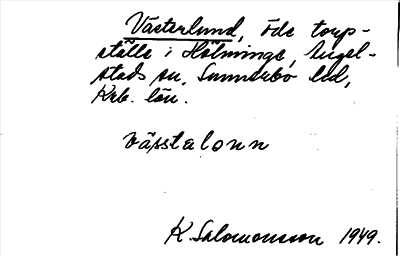 Västerlund, öde torp-
ställe i Hölminge, Angel-
stads sn, Sunnerbo hd,
Krb. län.
vässtalonn
K Salomonsson 1949.